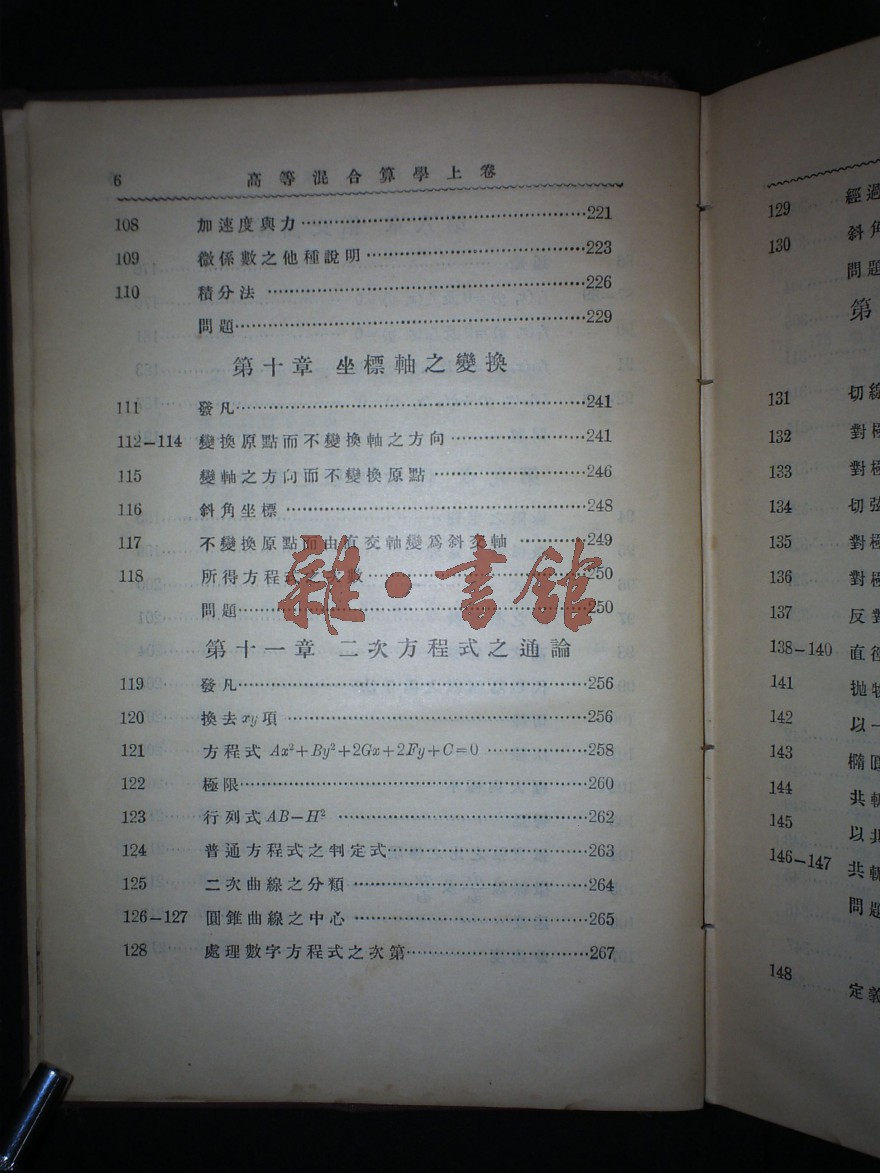 6 高等混合算學上卷
108 加速度與力……221
109 微係數之他種說明……223
110 積分法……226
問題……229
第十章 坐標軸之變換
111 發凡……241
112–114 變換原點而不變換軸之方向……241
115 變軸之方向而不變換原點……246
116 斜角坐標……248
117 不變換原點而由直交軸變爲斜交軸……249
118 所得方程式之次數……250
問題……250
雜·書館
第十一章 二次方程式之通論
119 發凡……256
120 換去xy項……256
121 方程式 Ax²+By²+2Gx+2Fy+C=0……258
122 極限……260
123 行列式AB–H²……262
124 普通方程式之判定式……263
125 二次曲線之分類……264
126–127 圓錐曲線之中心……265
128 處理數字方程式之次第……267
129 經過
130 斜角
問題
第
131 切線
132 對極
133 對極
134 切弦
135 對極
136 對極
137 反對
138–140 直徑
141 拋物
142 以一
143 橢圓
144 共軛
145 以共
146–147 共軛
問題
148 定義